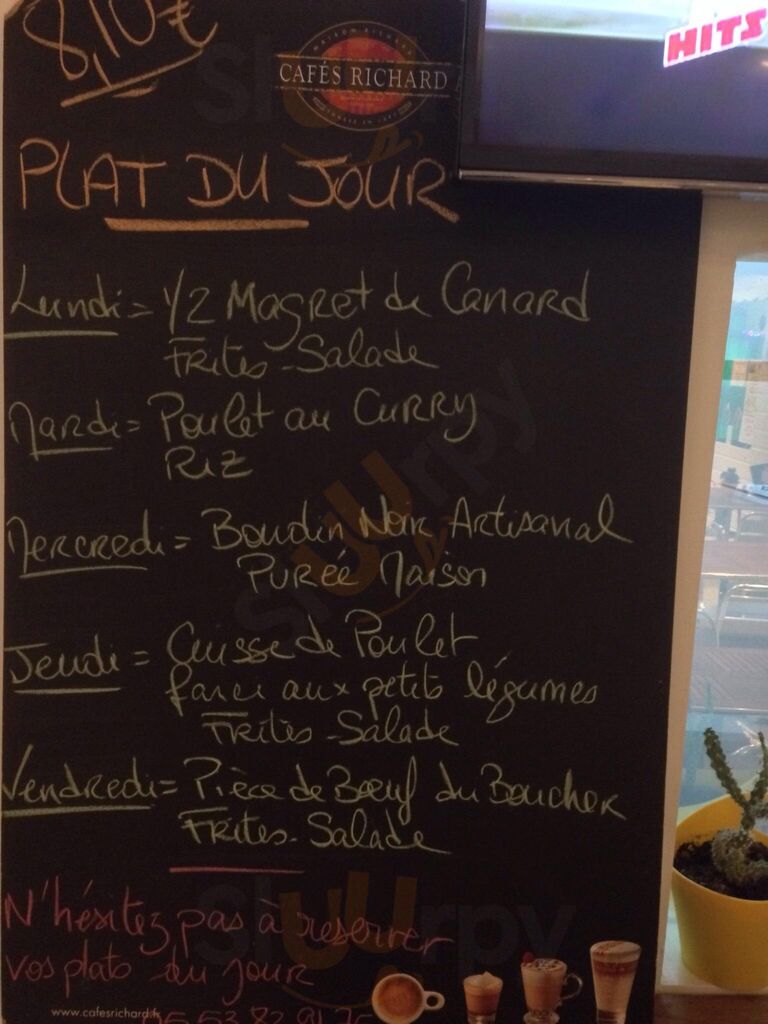 8,10€
MAISON RICHARD
CAFÉS RICHARD
HITS
PLAT DU JOUR
Lundi = 1/2 Magret de Canard
Frites - Salade
Mardi = Poulet au Curry
Riz
Mercredi = Boudin Noir Artisanal
Pureé Maison
Jeudi = Cuisse de Poulet
farci aux petits légumes
Frites - Salade
Vendredi = Pièce de Bœuf du Boucher
Frites - Salade
N'hésitez pas à reserver
vos plats du jour
www.cafesrichard.fr
Sluurpy
Sluurpy
Sluurpy